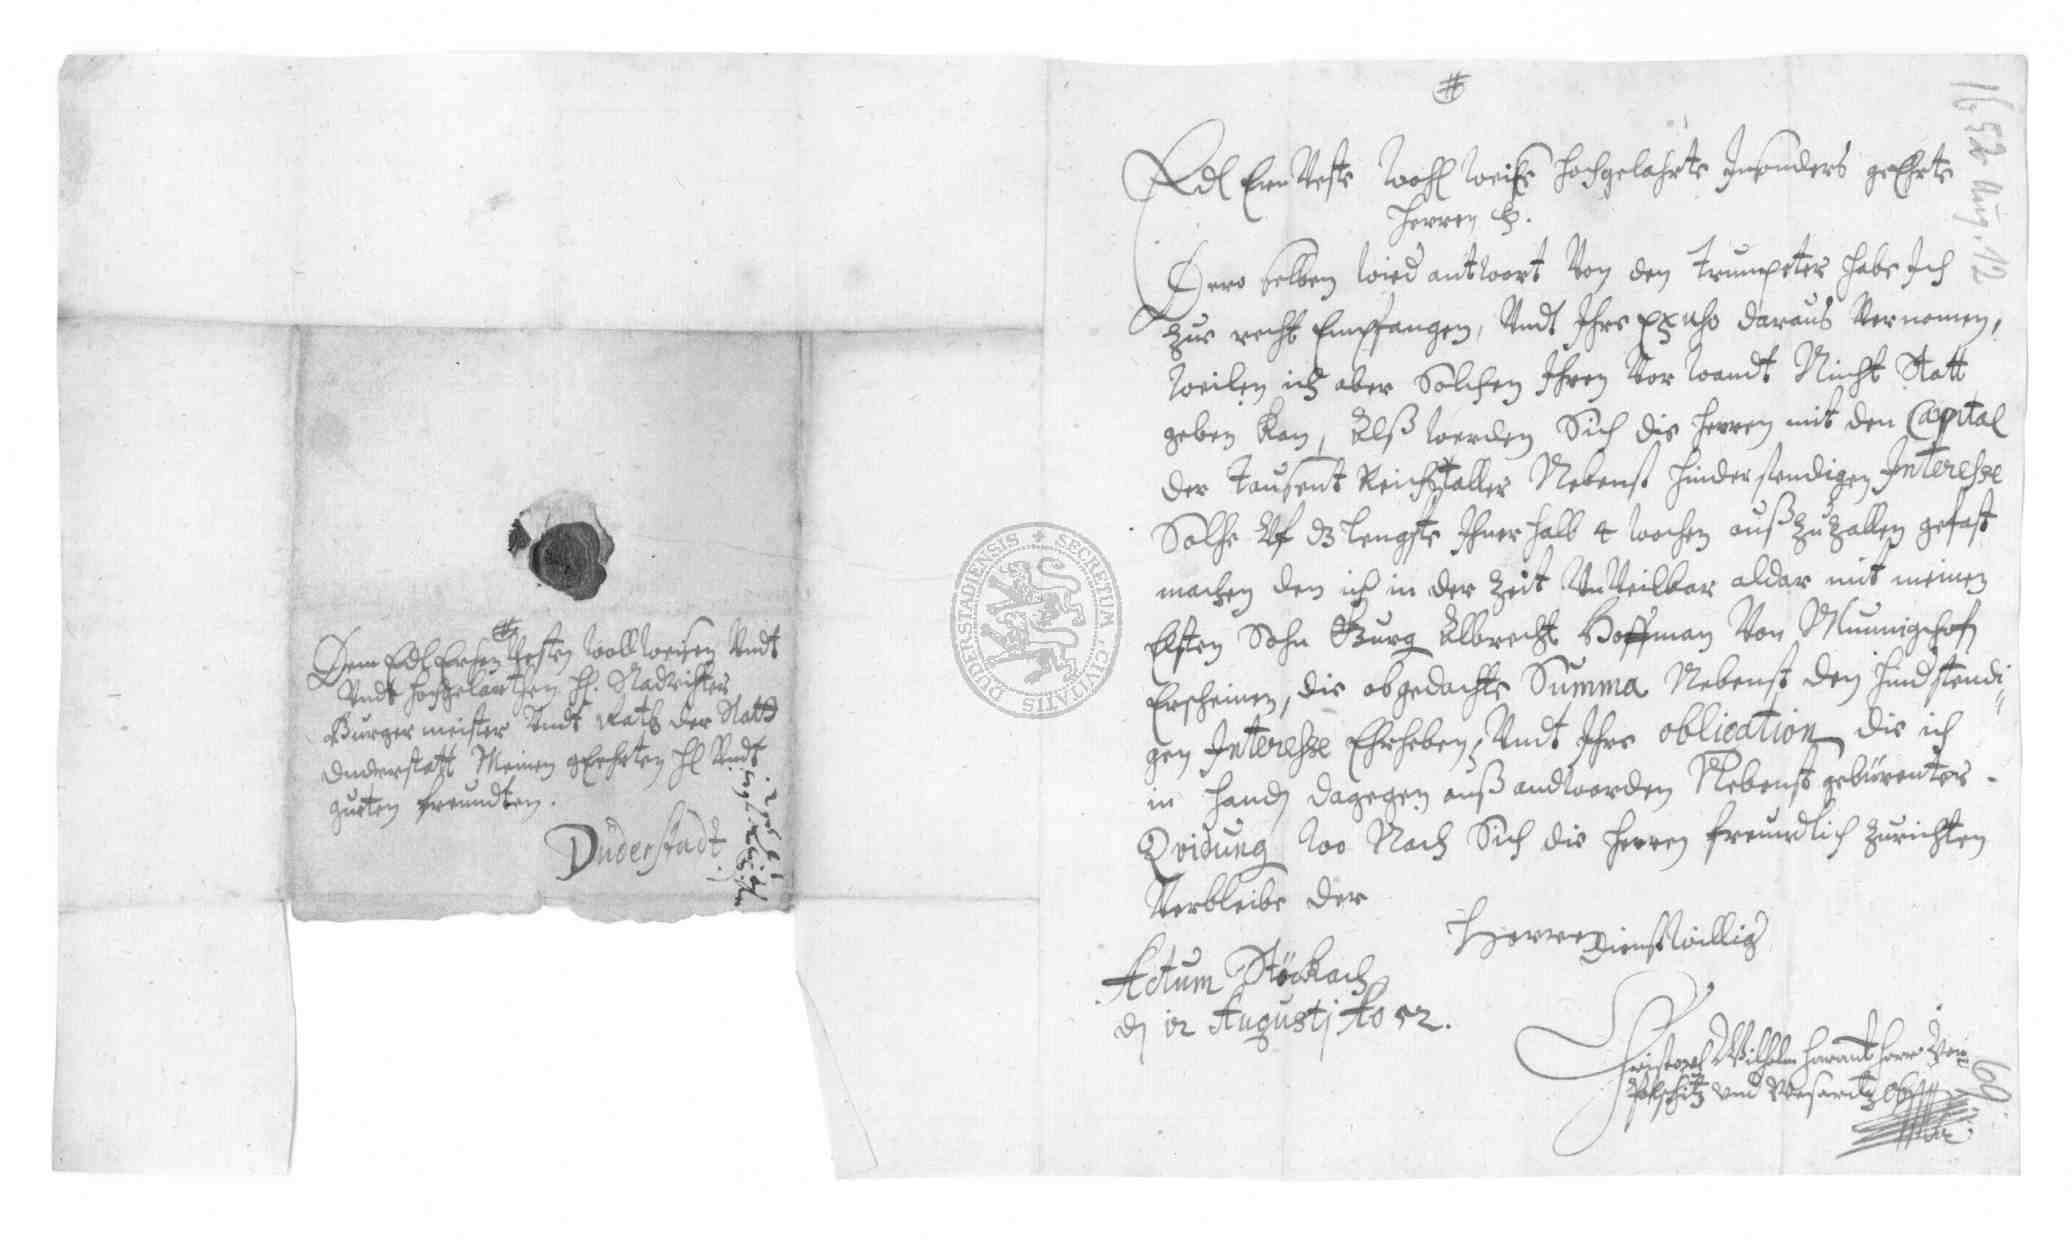 Dem Edl Ehrenvesten Wollweisen Undt
Undt hochgelarten H. Stadrichter
Burgermeister Undt Rath der Stadt
Duderstatt Meinen geEhrten H Undt
gueten freundten.
Duderstadt
SECRETUM CIVITATIS DUDERSTADIENSIS
1652 Aug. 12
Edl Ern Veste Wohl Weise hochgelahrte Insonders geEhrte
Herren
Dero selben Wied antwort Von den Trumpeter habe Ich
zue recht Empfangen, Undt Ihre daraus Vernomen,
Weilen ich aber Solchen Ihren Vor Wandt Nicht Statt
geben kan, Alß werden Sich die Herren mit den Capital
der Tausent Reichstaller Nebenst hinderstendigen Interesse
Solche Uf dz lengste Ihner halb 4 wochen auß zu zallen gefast
machen den ich in der Zeit UnVeilbar aldar mit meinen
Elsten Sohn Georg Albrecht Hoffman Von Munnigchofn
Erscheinen, die obgedachte Summa Nebenst den hindstendi
gen Interesse Ehrheben, Undt Ihre oblication die ich
in handn dagegen auß andworden Nebenst gebürenter
Qvidung Wo Nach Sich die Herren freundlich zurichten
Verbleibe der
Herren Dienstwillig
Actum Stöckach
dn 12 Augusti Ao 52.
Christoph Wilhelm Harant Herr Von
Polschitz und Weseritz
69.